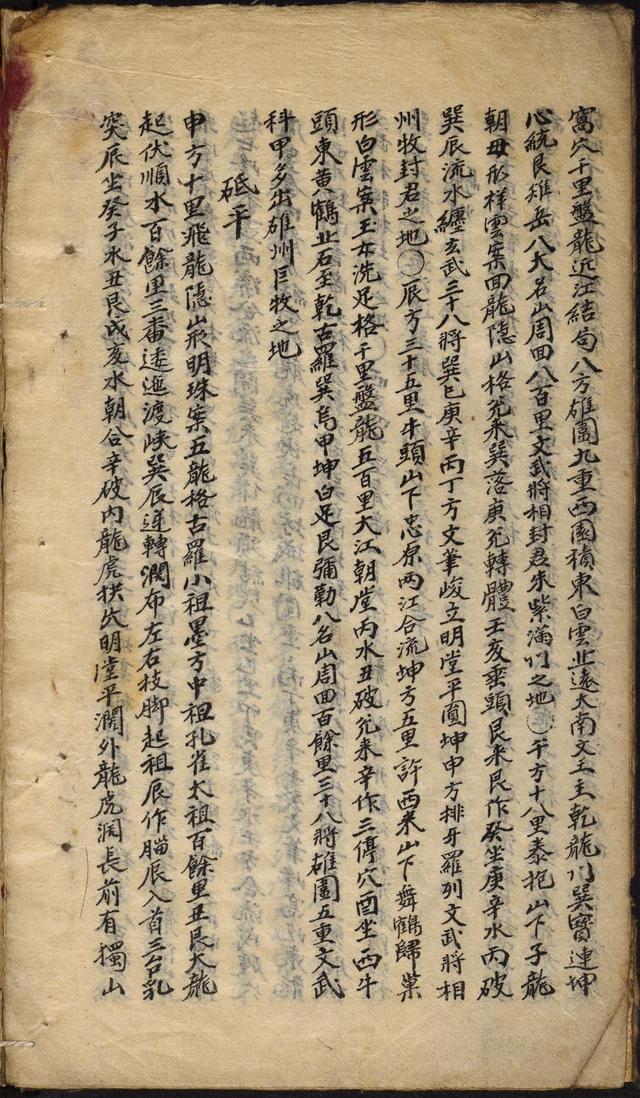 窩穴千里盤龍近江結局八方雄圍九重西圓積東白雲北遠大南文玉主乾龍门巽寶連坤
心統艮雉岳八大名山周回八百里文武將相封君朱紫滿门之地○午方十八里泰抱山下子龍
朝母形祥雲案回龍隐山格兊来巽落庚兊轉體壬亥乘頭艮来艮作癸坐庚辛水丙破
巽辰流水纏玄武三十八將巽巳庚辛丙丁方文筆峻立明堂平圓坤申方排牙羅列文武將相
州牧封君之地○辰方三十五里牛頭山下忠原两江合流坤方五里許西来山下舞鶴歸巢
形白雲案玉女洗足格千里盤龍五百里大江朝堂丙水丑破兊来辛作三停穴酉坐西牛
頭東黄鶴北石至乾古羅巽烏甲坤白足艮彌勒八名山周回百餘里三十八將雄圍五重文武
科甲多出雄州巨牧之地
砥平
申方十里飛龍隐山形明珠案五龍格古羅小祖墨方中祖孔雀太祖百餘里丑艮大龍
起伏順水百餘里三番逶迤渡峡巽辰逆轉濶布左右枝脚起祖辰作腦辰入首三台乳
突辰坐癸子水丑艮戌亥水朝合辛破内龍虎拱炊明堂平濶外龍虎濶長前有獨山